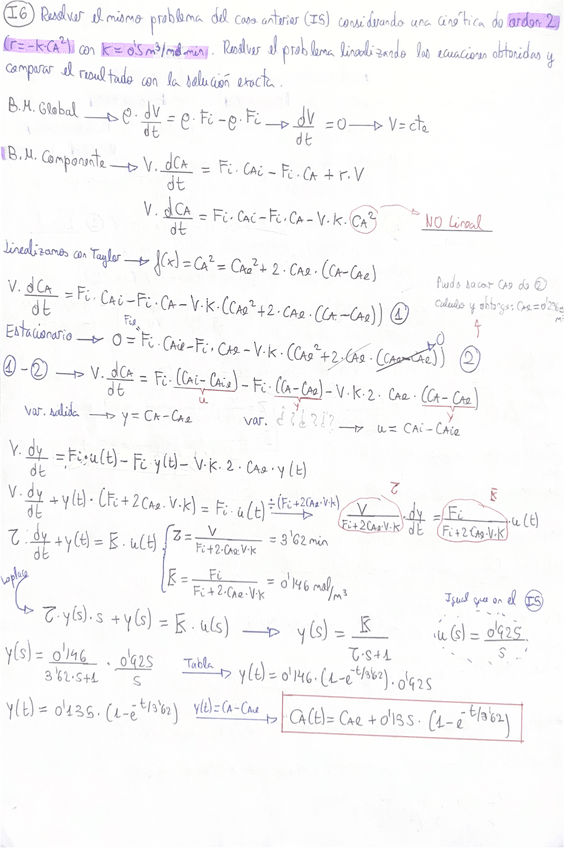 I6 Resolver el mismo problema del caso anterior (I5) considerando una cinética de orden 2
(r=-K·CA²) con K=0'5 m³/mol·min. Resolver el problema linealizando las ecuaciones obtenidas y
comparar el resultado con la solución exacta.
B.M. Global → ρ·dV/dt = ρ·Fi-ρ·Fi → dV/dt = 0 → V=cte
B.M. Componente → V·dCA/dt = Fi·CAi-Fi·CA + r·V
V·dCA/dt = Fi·CAi-Fi·CA-V·K·CA² → No lineal
Linealizamos con Taylor → f(x)=CA²=CAe²+2·CAe·(CA-CAe)
Puedo sacar CAe de ②
V·dCA/dt = Fi·CAi-Fi·CA-V·K·(CAe²+2·CAe·(CA-CAe)) ①
calculo y obtengo: CAe=
Estacionario → 0=Fi·CAie-Fi·CAe-V·K·(CAe²+2·CAe·(CAe-CAe)) ② 0
Fie
①-② → V·dCA/dt = Fi·(CAi-CAie)-Fi·(CA-CAe)-V·K·2·CAe·(CA-CAe)
u y y
var. salida → y=CA-CAe var. ¿?¿?¿? → u=CAi-CAie
V·dy/dt = Fi·u(t)-Fi y(t)-V·K·2·CAe·y(t)
V·dy/dt + y(t)·(Fi+2CAe·V·K) = Fi·u(t) ÷(Fi+2CAe·V·K) → V/(Fi+2CAe·V·K)·dy/dt = Fi/(Fi+2CAe·V·K)·u(t)
τ K
τ·dy/dt + y(t) = K·u(t) { τ = V/(Fi+2·CAe·V·K) = 3'62 min
K = Fi/(Fi+2·CAe·V·K) = 0'146 mol/m³
Laplace
Igual que en el I5
τ·y(s)·s + y(s) = K·u(s) → y(s) = K/(τ·s+1) ·u(s) = 0'925/s
y(s) = 0'146/(3'62·s+1) · 0'925/s Tabla → y(t)=0'146·(1-e^(-t/3'62))·0'925
y(t)=0'135·(1-e^(-t/3'62)) y(t)=CA-CAe → CA(t)=CAe+0'135·(1-e^(-t/3'62))